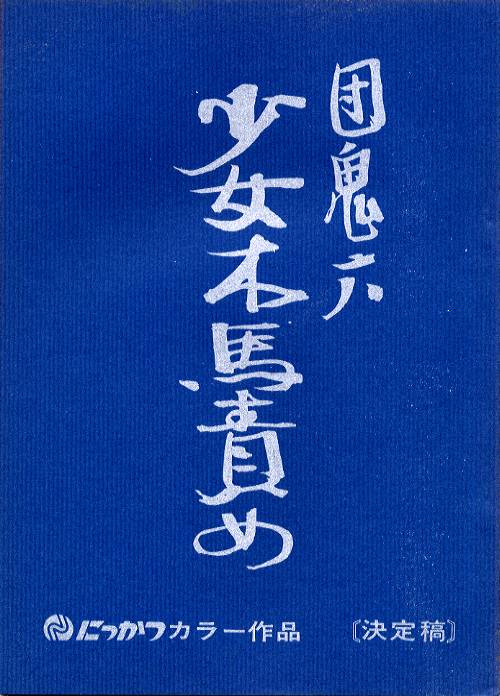 団鬼六
少女木馬責め
にっかつカラー作品 〔決定稿〕